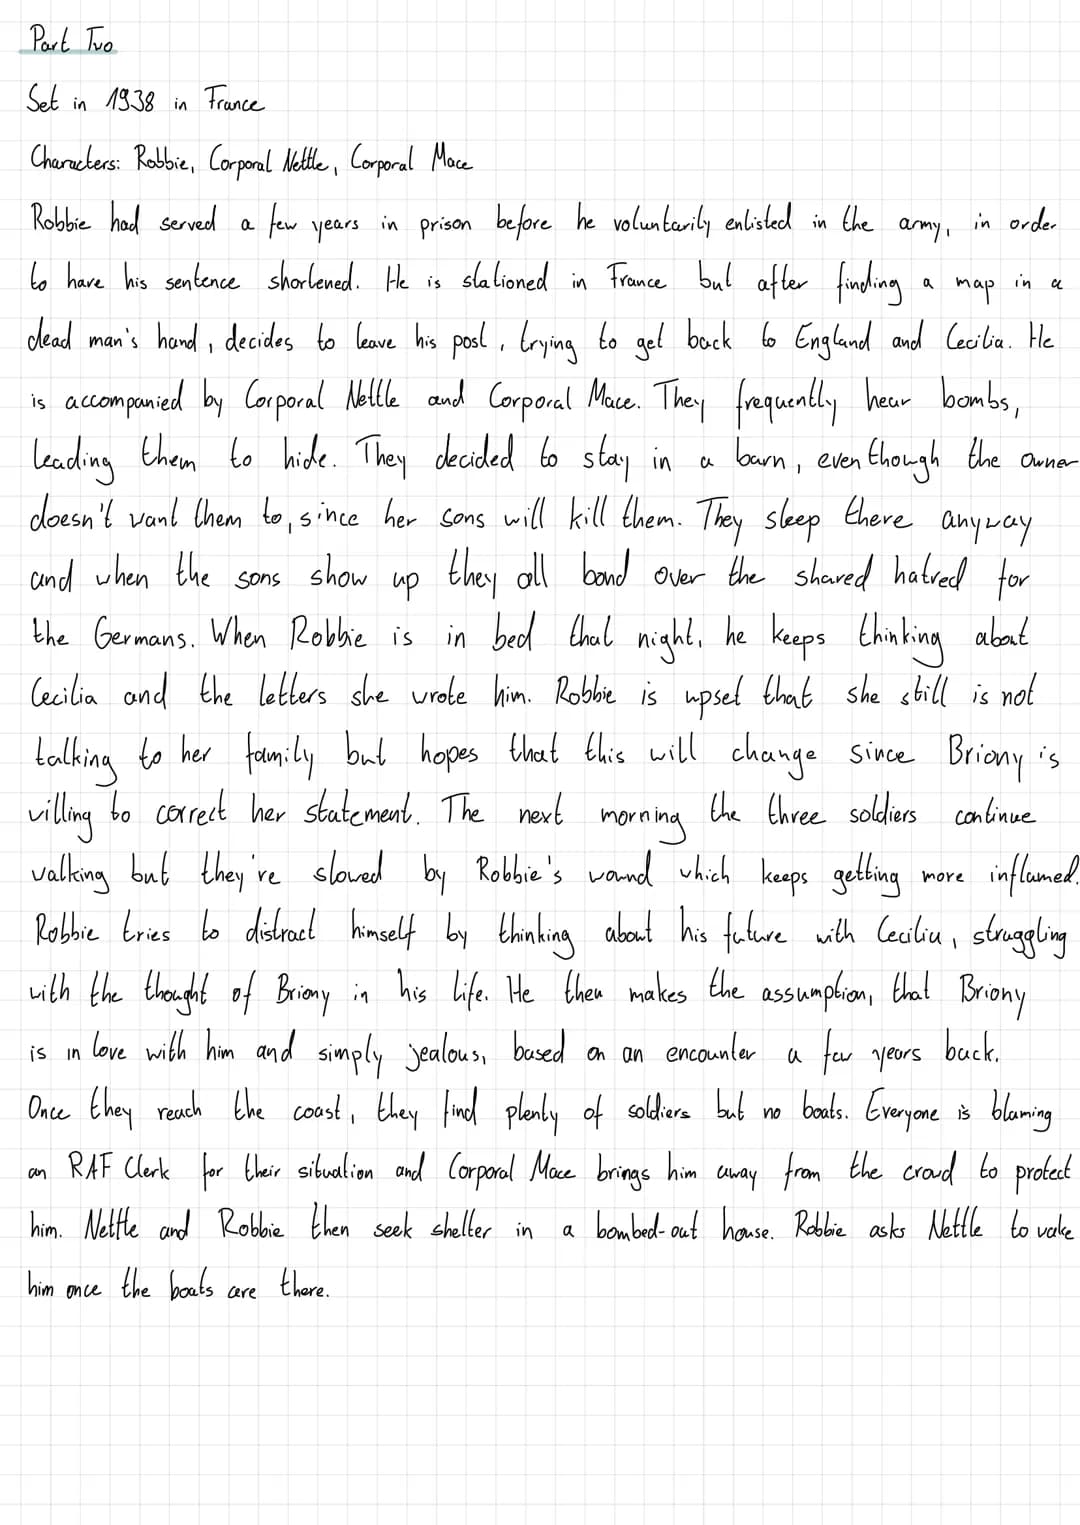 Part Two
Set in 1938 in France
Characters: Robbie, Corporal Nettle, Corporal Mace
Robbie had served a few years in prison before he voluntarily enlisted in the army, in order
to have his sentence shortened. He is stationed in France but after finding a map in a
dead man's hand, decides to leave his post, trying to get back to England and Cecilia. He
is accompanied by Corporal Nettle and Corporal Mace. They frequently hear bombs,
leading them to hide. They decided to stay in a barn, even though the owner
doesn't want them to, since her sons will kill them. They sleep there anyway
and when the sons show up they all bond over the shared hatred for
the Germans. When Robbie is in bed that night, he keeps thinking about
Cecilia and the letters she wrote him. Robbie is upset that she still is not
talking to her family but hopes that this will change since Briony is
willing to correct her statement. The next morning the three soldiers continue
walking but they're slowed by Robbie's wound which keeps getting more inflamed.
Robbie tries to distract himself by thinking about his future with Cecilia, struggling
with the thought of Briony in his life. He then makes the assumption, that Briony
is in love with him and simply jealous, based on an encounter a few years back.
Once they reach the coast, they find plenty of soldiers but no boats. Everyone is blaming
an RAF Clerk for their situation and Corporal Mace brings him away from the crowd to protect
him. Nettle and Robbie then seek shelter in a bombed-out house. Robbie asks Nettle to wake
him once the boats are there.